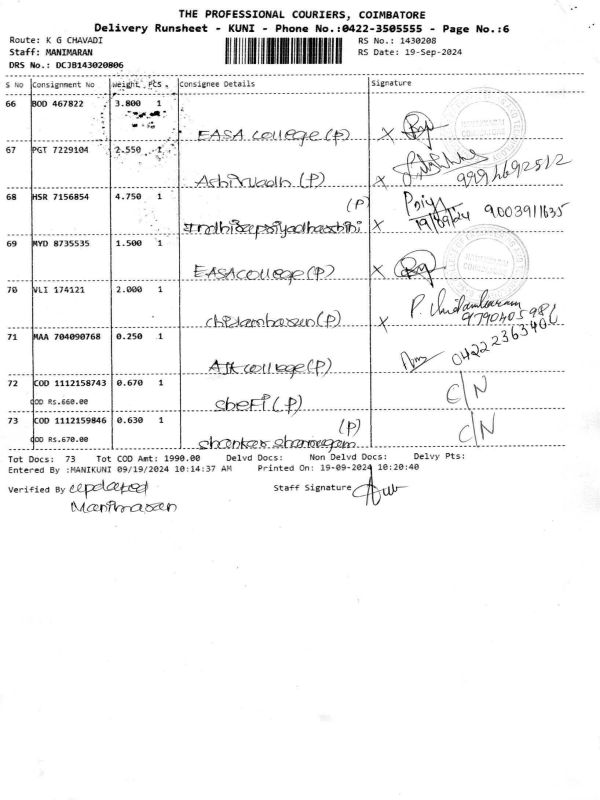 THE PROFESSIONAL COURIERS, COIMBATORE
Delivery Runsheet - KUNI - Phone No.:0422-3505555 - Page No.:6
Route: K G CHAVADI
RS No.: 1430208
Staff: MANIMARAN
RS Date: 19-Sep-2024
DRS No.: DCJB143020806
S No Consignment No Weight Pcs Consignee Details Signature
66 BOD 467822 3.800 1
EASA College (P) X
67 PGT 7229104 2.550 1
(P) X
68 HSR 7156854 4.750 1 (P) Priya
X 19/09/24 9003911635
69 MYD 8735535 1.500 1
EASA college (P) X
70 VLI 174121 2.000 1 P. Chidambaram
chidambaram (P) X
71 MAA 704090768 0.250 1 04222363406
AJK college (P)
72 COD 1112158743 0.670 1 C/N
COD Rs.660.00 sheFi (P)
73 COD 1112159846 0.630 1 (P) C/N
COD Rs.670.00
Tot Docs: 73 Tot COD Amt: 1990.00 Delvd Docs: Non Delvd Docs: Delvy Pts:
Entered By :MANIKUNI 09/19/2024 10:14:37 AM Printed On: 19-09-2024 10:20:40
Verified By updated Staff Signature
Manimaran